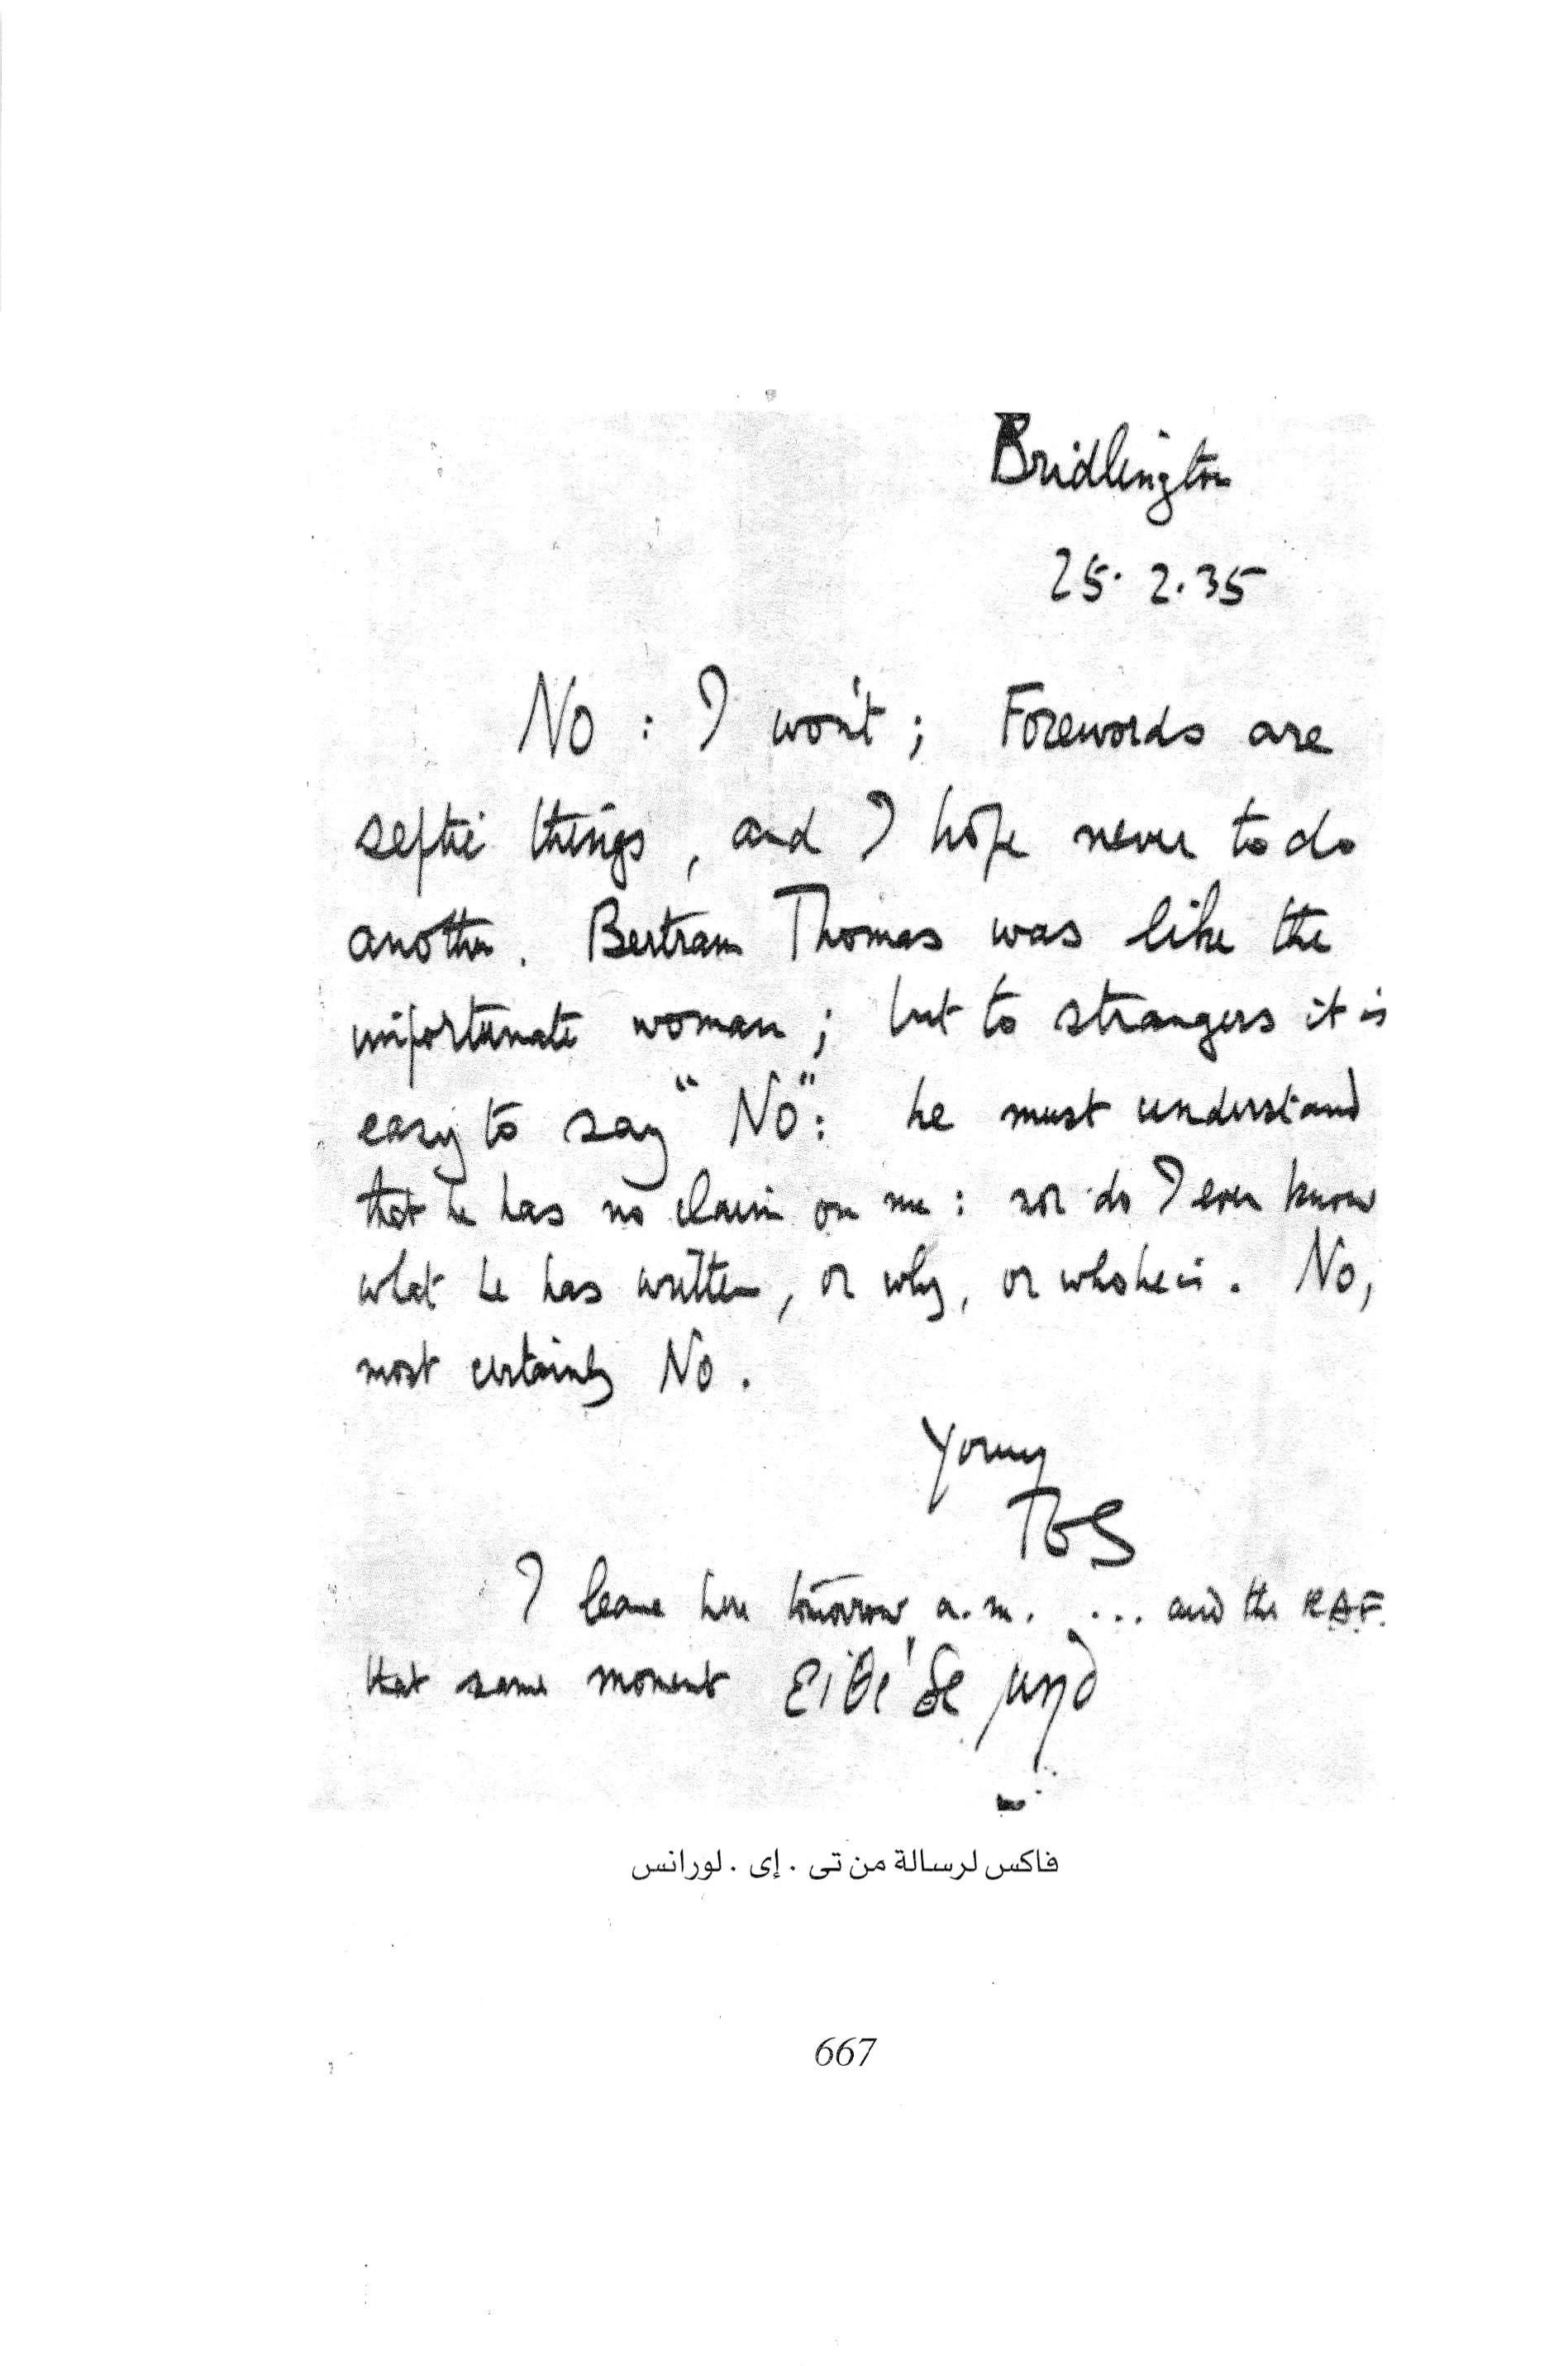 Bridlington
25. 2. 35
No : I won't ; Forewords are
septic things, and I hope never to do
another. Bertram Thomas was like the
unfortunate woman ; but to strangers it is
easy to say "No": he must understand
that he has no claim on me : nor do I even know
what he has written, or why, or who he is. No,
most certainly No.
Yours
TES
I leave here tomorrow a.m. ... and the RAF.
that same moment εἴθε δε μηδ
فاكس لرسالة من تى . إى . لورانس
667